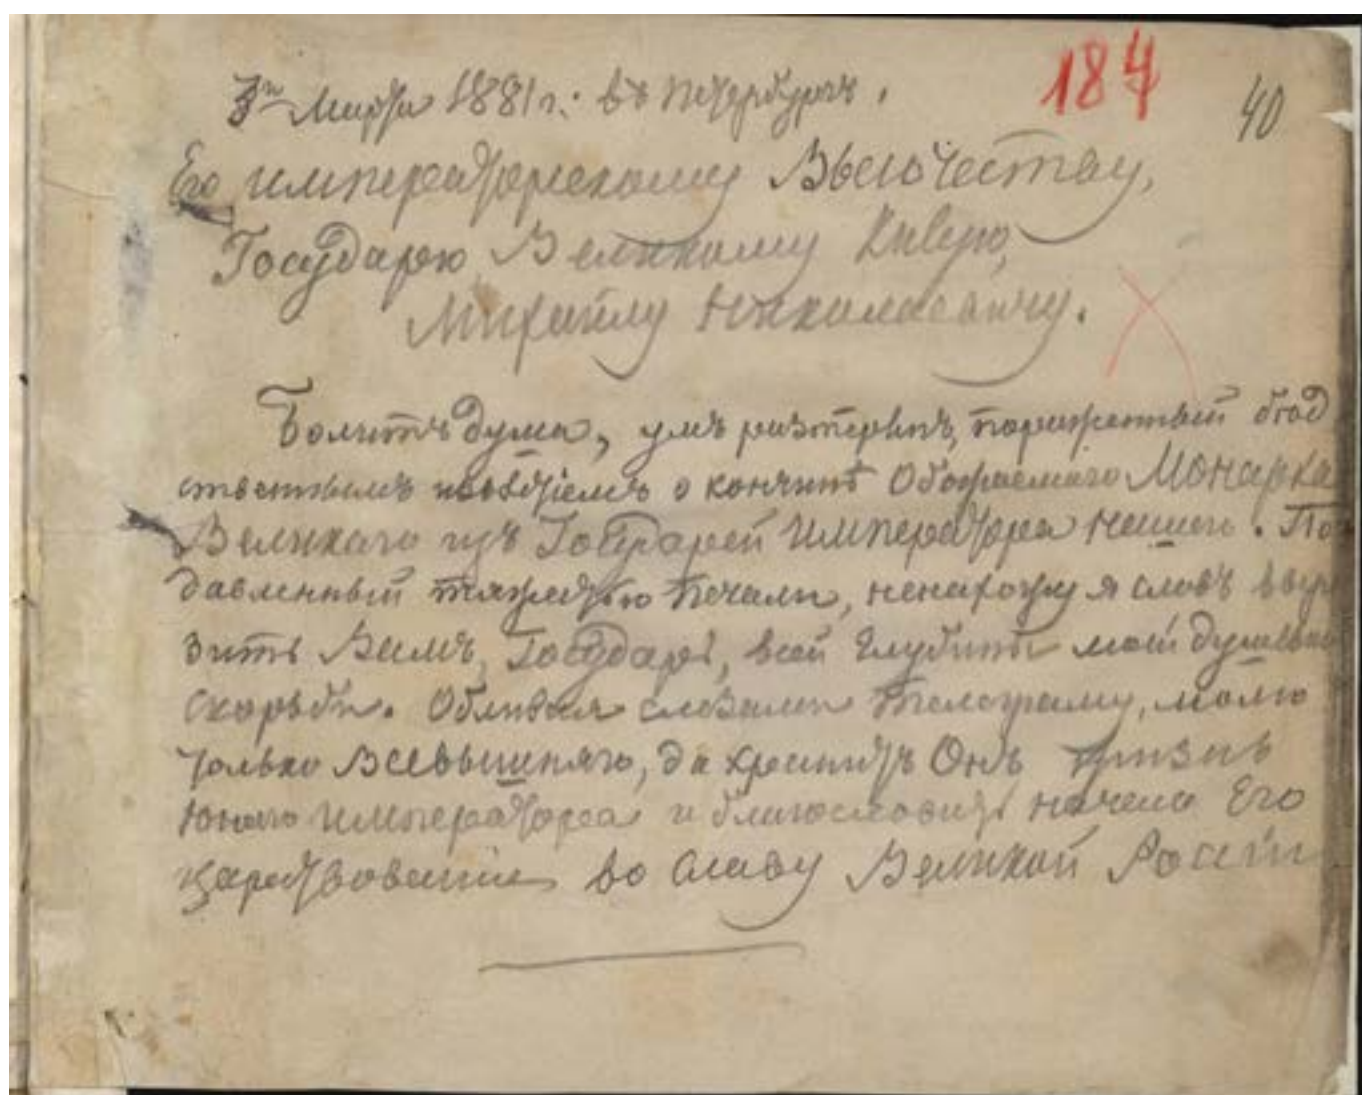 184
40
3го Марта 1881 г. въ Петербургъ.
Его Императорскому Высочеству,
Государю Великому Князю,
Михаилу Николаевичу.
Болитъ душа, умъ растерянъ, пораженный бѣд
ственнымъ извѣстіемъ о кончинѣ Обожаемого Монарха
Великаго изъ Государей Императора нашего. По
давленный тяжестью печали, ненахожу я словъ выра
зить Вамъ, Государь, всей глубины моей душевной
скорьби. Обливая слезами телеграму, молю
только Всевышняго, да хранитъ Онъ жизнь
Юного Императора и благословитъ начело Его
Царствованія во славу Великой Росіи